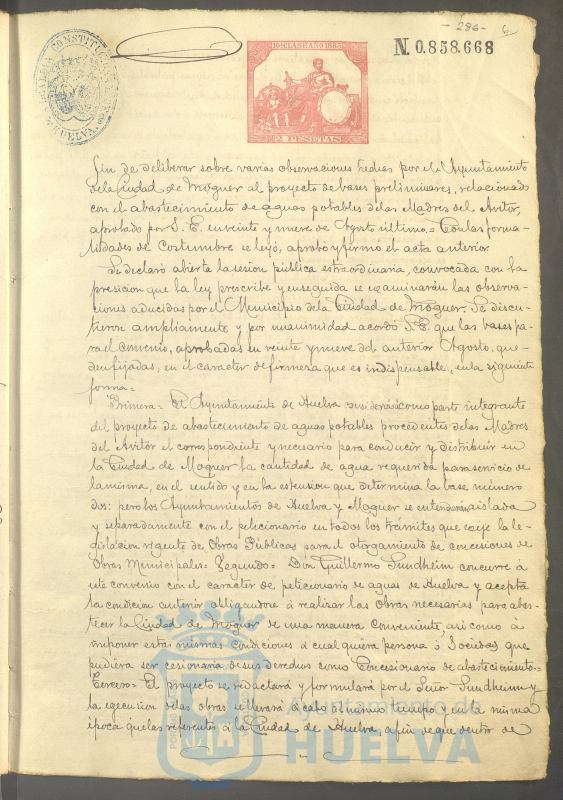 - 286 - 6
N. 0.858.668
ALCALDIA CONSTITUCIONAL HUELVA
10ª CLASE AÑO 1885
2 PESETAS
fin de deliberar sobre varias observaciones hechas por el Ayuntamiento
de la Ciudad de Moguer al proyecto de bases preliminares, relacionado
con el abastecimiento de aguas potables de las Madres del Avitór,
aprobado por S. E. en veinte y nueve de Agosto último = Con las forma-
lidades de Costumbre se leyó, aprobó y firmó el acta anterior
Se declaró abierta la sesion pública extraordinaria, convocada con la
presicion que la ley prescribe y enseguida se examinarón las observa-
ciones aducidas por el Municipio de la Ciudad de Moguer; Se discu-
tieron ampliamente y por unanimidad acordó S. E. que las bases pa-
ra el convenio, aprobadas en veinte y nueve del anterior Agosto, que-
den fijadas, en el caracter de firmeza que es indispensable, en la siguiente
forma =
Primera = El Ayuntamiento de Huelva considerará como parte integrante
del proyecto de abastecimiento de aguas potables procedentes de las Madres
del Avitór el correspondiente y necesario para conducir y distribuir en
la Ciudad de Moguer la cantidad de agua requerida para servicio de
la misma, en el sentido y en la estension que determina la base número
dos: pero los Ayuntamientos de Huelva y Moguer se entenderan aislada
y separadamente con el peticionario en todos los trámites que exije la le-
gislacion vigente de Obras Públicas para el otorgamiento de concesiones de
Obras Municipales = Segundo = Don Guillermo Sundheim concurre á
este convenio con el caracter de peticionario de aguas de Huelva y acepta
la condicion anterior obligandose á realizar las Obras necesarias para abas-
tecer la Ciudad de Moguer de una manera conveniente, asi como á
imponer estas mismas condiciones á cualquiera persona ó Sociedad que
pudiera ser cesionaria de sus derechos como Concesionario de abastecimiento =
Tercero = El proyecto se redactará y formulará por el Señor Sundheim y
la egecusion de las obras se llevará á cabo al mismo tiempo y en la misma
época que las referentes á la Ciudad de Huelva, á fin de que dentro de
Ayuntamiento de
HUELVA